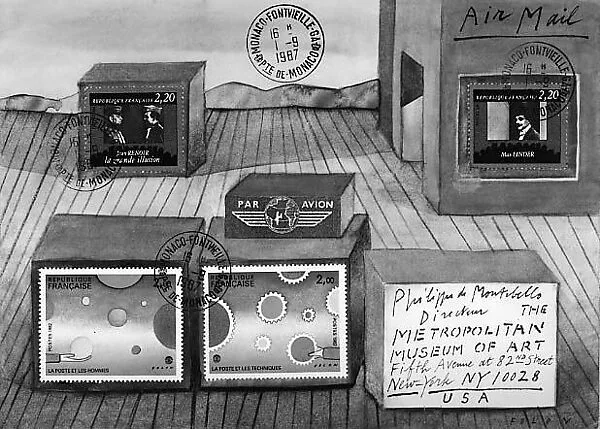 Air Mail
MONACO-FONTVIEILLE-GARE
16 H
1 -9
1987
PTE DE MONACO
REPUBLIQUE FRANÇAISE 2,20
Jean RENOIR
la grande illusion
REPUBLIQUE FRANÇAISE 2,20
Max LINDER
PAR AVION
MONACO-FONTVIEILLE
16 H
1987
PTE DE MONACO
REPUBLIQUE
FRANÇAISE
POSTES 1982
FOLON
LA POSTE ET LES HOMMES
REPUBLIQUE
FRANÇAISE
2,00
POSTES 1982
FOLON
LA POSTE ET LES TECHNIQUES
Philippe de Montebello
Directeur THE
METROPOLITAN
MUSEUM OF ART
Fifth Avenue at 82nd Street
New-York NY 10028
USA
FOLON